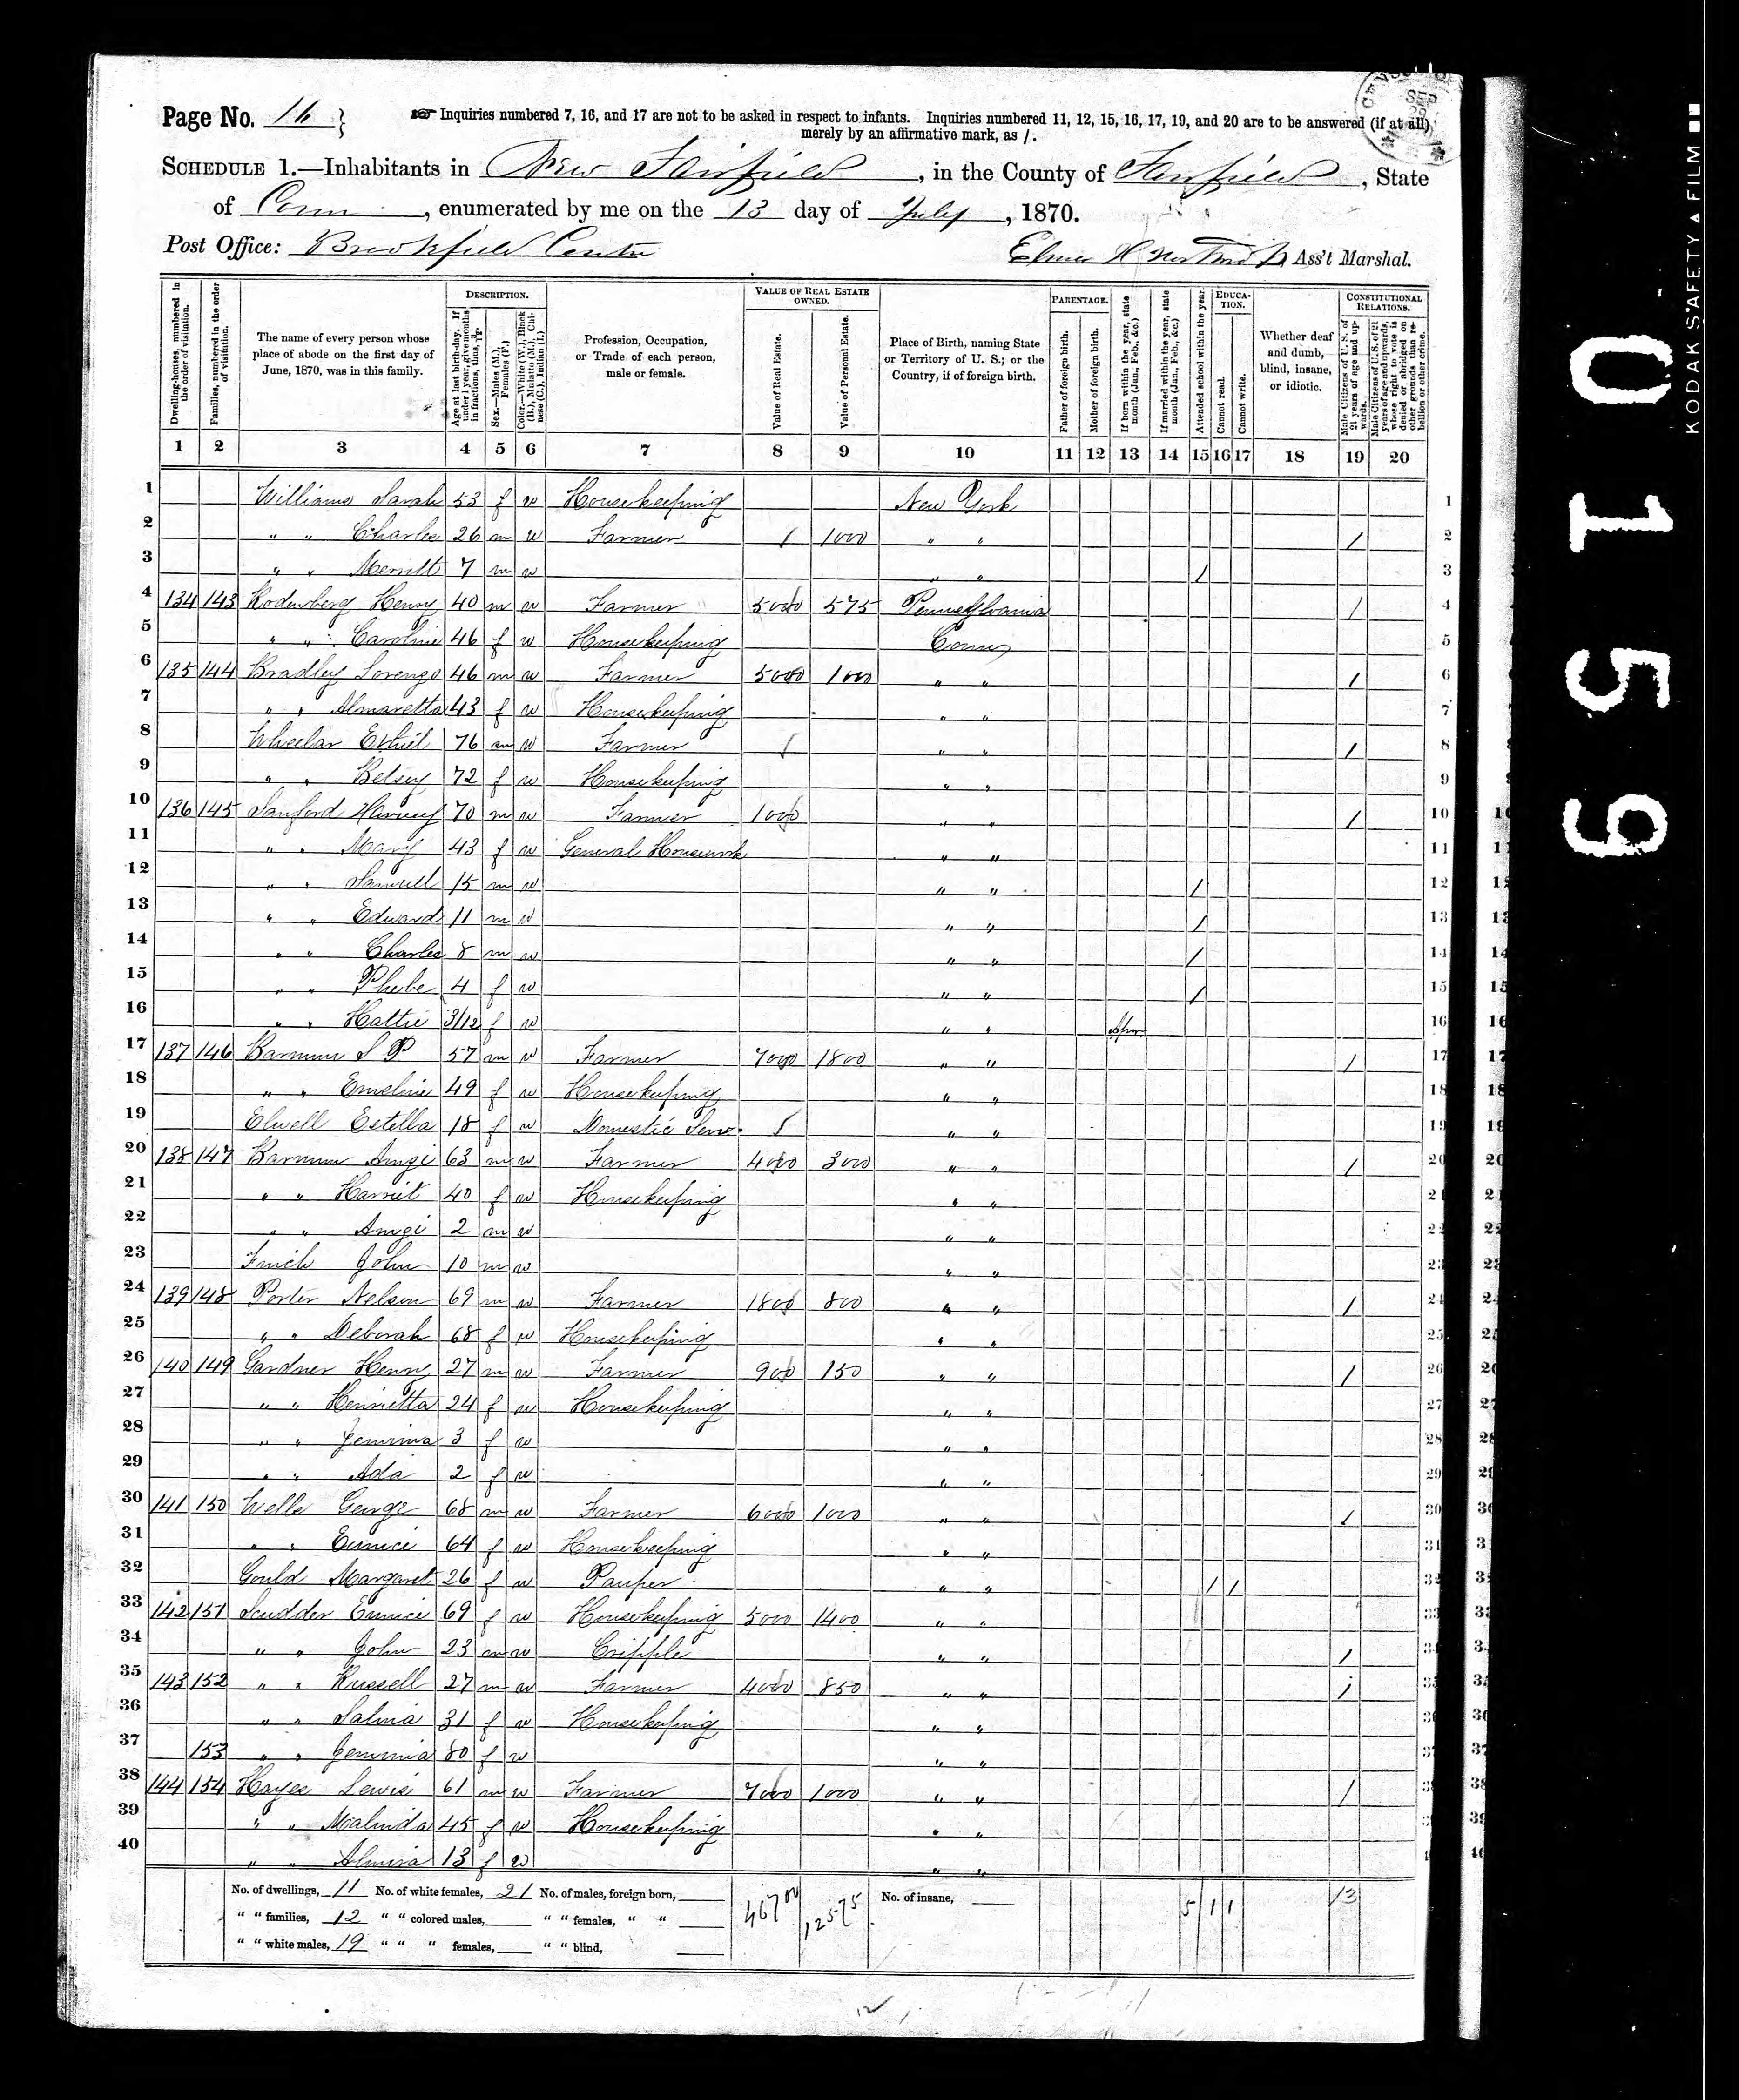 Page No. 16 } Inquiries numbered 7, 16, and 17 are not to be asked in respect to infants. Inquiries numbered 11, 12, 15, 16, 17, 19, and 20 are to be answered (if at all)
merely by an affirmative mark, as /.
SCHEDULE 1.—Inhabitants in New Fairfield, in the County of Fairfield, State
of Conn, enumerated by me on the 13 day of July, 1870.
Post Office: Brookfield Center Ass't Marshal.
SEP
DESCRIPTION. VALUE OF REAL ESTATE OWNED. PARENTAGE. EDUCATION. CONSTITUTIONAL RELATIONS.
Dwelling-houses, numbered in the order of visitation.
Families, numbered in the order of visitation.
The name of every person whose place of abode on the first day of June, 1870, was in this family.
Age at last birth-day. If under 1 year, give months in fractions, thus, 3/12.
Sex.—Males (M.), Females (F.)
Color.—White (W.), Black (B.), Mulatto (M.), Chinese (C.), Indian (I.)
Profession, Occupation, or Trade of each person, male or female.
Value of Real Estate.
Value of Personal Estate.
Place of Birth, naming State or Territory of U. S.; or the Country, if of foreign birth.
Father of foreign birth.
Mother of foreign birth.
If born within the year, state month (Jan., Feb., &c.)
If married within the year, state month (Jan., Feb., &c.)
Attended school within the year.
Cannot read.
Cannot write.
Whether deaf and dumb, blind, insane, or idiotic.
Male Citizens of U. S. of 21 years of age and upwards.
Male Citizens of U. S. of 21 years of age and upwards, whose right to vote is denied or abridged on other grounds than rebellion or other crime.
1 2 3 4 5 6 7 8 9 10 11 12 13 14 15 16 17 18 19 20
1 Williams Sarah 53 f w Housekeeping New York 1
2 " " Charles 26 m w Farmer / 1000 " " / 2
3 " " Merritt 7 m w " " / 3
4 134 143 Rodenberg Henry 40 m w Farmer 5000 575 Pennsylvania / 4
5 " " Caroline 46 f w Housekeeping Conn 5
6 135 144 Bradley Lorenzo 46 m w Farmer 5000 1000 " " / 6
7 " " Almaretta 43 f w Housekeeping " " 7
8 Wheelar 76 m w Farmer / " " / 8
9 " " Betsey 72 f w Housekeeping " " 9
10 136 145 Sanford Harvey 70 m w Farmer 1000 " " / 10
11 " " Mary 43 f w General Housework " " 11
12 " " Samuell 15 m w " " / 12
13 " " Edward 11 m w " " / 13
14 " " Charles 8 m w " " / 14
15 " " Phebe 4 f w " " / 15
16 " " Hattie 3/12 f w " " Apr 16
17 137 146 Barnum S P 57 m w Farmer 7000 1800 " " / 17
18 " " Emeline 49 f w Housekeeping " " 18
19 Elwell Estella 18 f w Domestic Serv. / " " 19
20 138 147 Barnum 63 m w Farmer 4000 3000 " " / 20
21 " " Harriet 40 f w Housekeeping " " 21
22 " " 2 m w " " 22
23 Finch John 10 m w " " 23
24 139 148 Porter Nelson 69 m w Farmer 1800 800 " " / 24
25 " " Deborah 68 f w Housekeeping " " 25
26 140 149 Gardner Henry 27 m w Farmer 900 150 " " / 26
27 " " Henrietta 24 f w Housekeeping " " 27
28 " " Jemima 3 f w " " 28
29 " " Ada 2 f w " " 29
30 141 150 Wells George 68 m w Farmer 6000 1000 " " / 30
31 " " Eunice 64 f w Housekeeping " " 31
32 Gould Margaret 26 f w Pauper " " / / 32
33 142 151 Scudder Eunice 69 f w Housekeeping 5000 1400 " " 33
34 " " John 23 m w Cripple " " / 34
35 143 152 " " Russell 27 m w Farmer 4000 850 " " / 35
36 " " Salina 31 f w Housekeeping " "
37 153 " " Jemima 80 f w " "
38 144 154 Hayes Lewis 61 m w Farmer 7000 1000 " " /
39 " " Malinda 45 f w Housekeeping " "
40 " " Almira 13 f w " "
No. of dwellings, 11 No. of white females, 21 No. of males, foreign born, 46700 12575 No. of insane, 5 1 1 13
" " families, 12 " " colored males, " " females, " "
" " white males, 19 " " " females, " " blind,
KODAK SAFETY FILM
01559